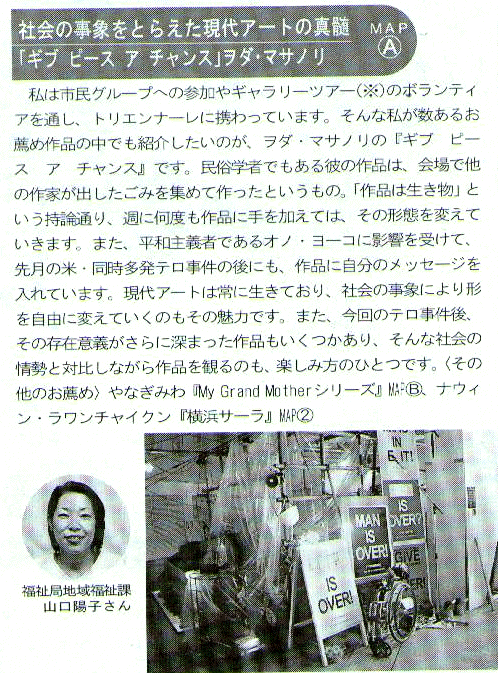 社会の事象をとらえた現代アートの真髄
「ギブ ピース ア チャンス」ヲダ・マサノリ
MAP
Ⓐ
　私は市民グループへの参加やギャラリーツアー(※)のボランティ
アを通し、トリエンナーレに携わっています。そんな私が数あるお
薦め作品の中でも紹介したいのが、ヲダ・マサノリの『ギブ　ピー
ス　ア　チャンス』です。民俗学者でもある彼の作品は、会場で他
の作家が出したごみを集めて作ったというもの。「作品は生き物」と
いう持論通り、週に何度も作品に手を加えては、その形態を変えて
いきます。また、平和主義者であるオノ・ヨーコに影響を受けて、
先月の米・同時多発テロ事件の後にも、作品に自分のメッセージを
入れています。現代アートは常に生きており、社会の事象により形
を自由に変えていくのもその魅力です。また、今回のテロ事件後、
その存在意義がさらに深まった作品もいくつかあり、そんな社会の
情勢と対比しながら作品を観るのも、楽しみ方のひとつです。〈その
他のお薦め〉やなぎみわ『My Grand Motherシリーズ』MAPⒷ、ナウィ
ン・ラワンチャイクン『横浜サーラ』MAP②
福祉局地域福祉課
山口陽子さん
IN
IS
OVER!
MAN
IS
OVER!
IS
OVER?
GIVE